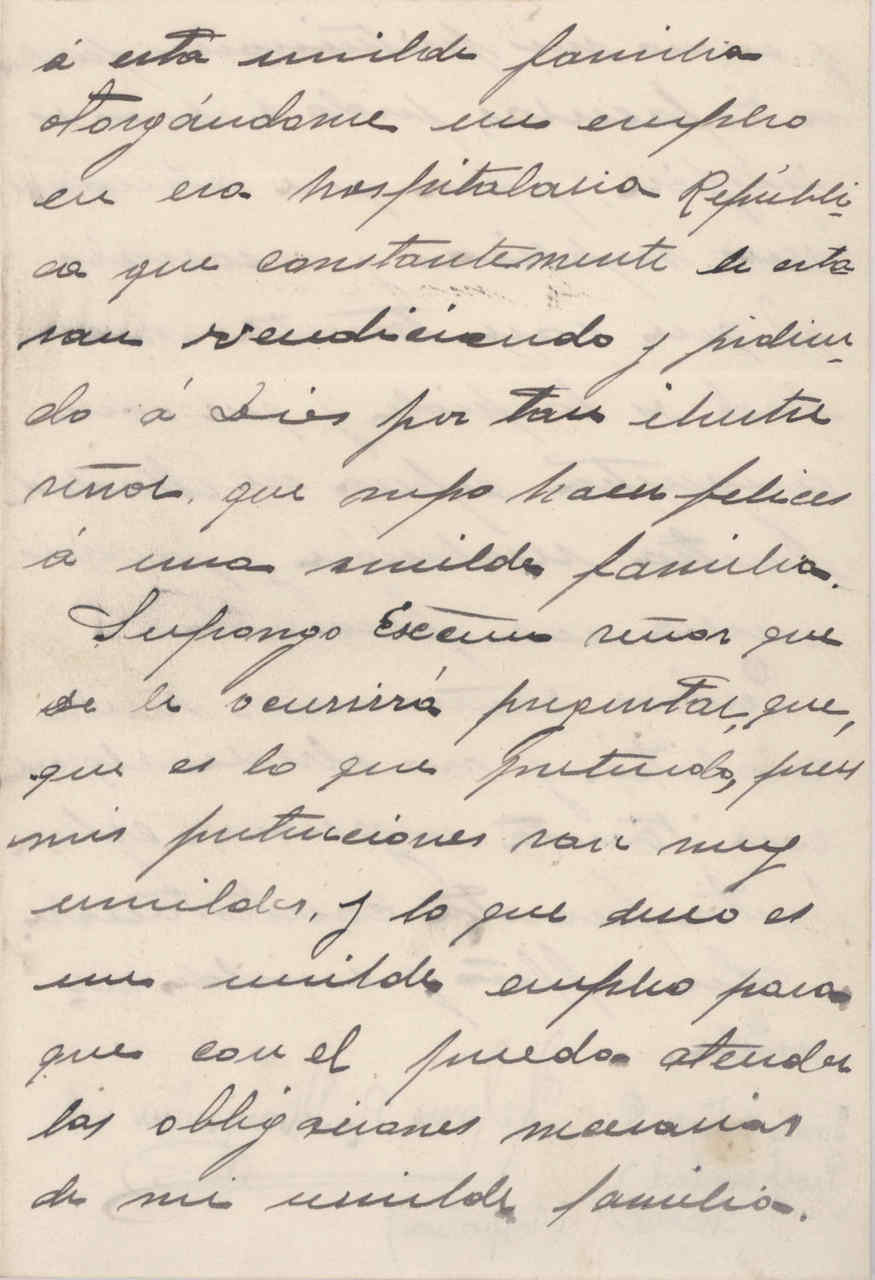 á esta umilde familia
otorgándome un empleo
en esa hospitalaria Repúbli-
ca que constantemente le esta-
ran vendiciendo y pidien-
do á Dios por tan ilustre
señor, que supo hacer felices
á una umilde familia.
Supongo Excmo señor que
se le ocurrirá preguntar, que,
que es lo que pretendo, pues
mis pretenciones son muy
umildes, y lo que deseo es
un umilde empleo para
que con el pueda atender
las obligaciones necesarias
de mi umilde familia.